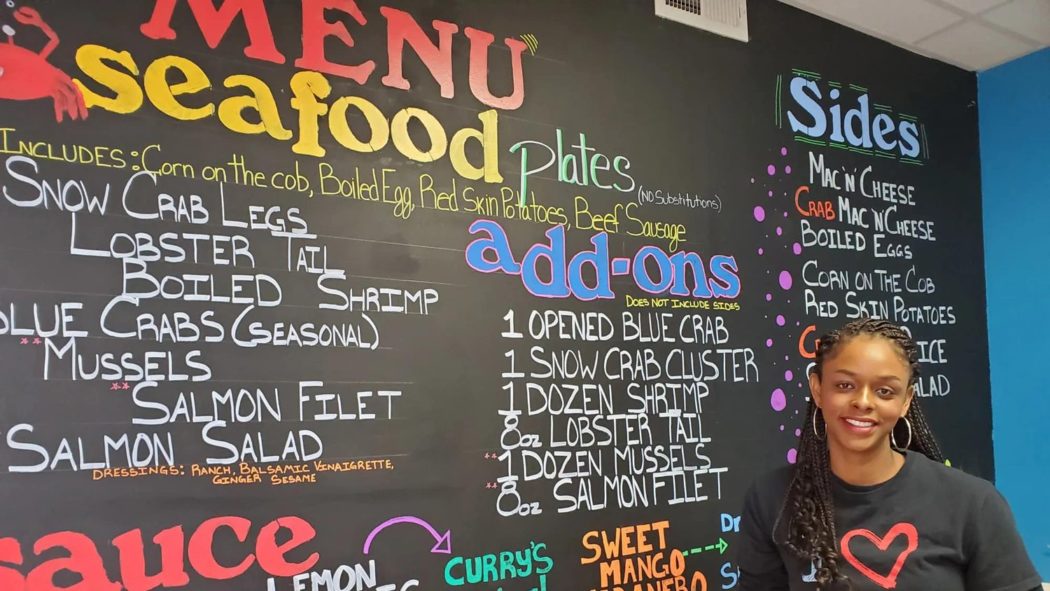 MENU
seafood plates (NO Substitutions)
INCLUDES: Corn on the cob, Boiled Egg, Red Skin Potatoes, Beef Sausage
SNOW CRAB LEGS
LOBSTER TAIL
BOILED SHRIMP
BLUE CRABS (SEASONAL)
** MUSSELS
** SALMON FILET
SALMON SALAD
DRESSINGS: RANCH, BALSAMIC VINAIGRETTE,
GINGER SESAME
add-ons
DOES NOT INCLUDE SIDES
1 OPENED BLUE CRAB
1 SNOW CRAB CLUSTER
1 DOZEN SHRIMP
8oz LOBSTER TAIL
**1 DOZEN MUSSELS
**8oz SALMON FILET
Sides
MAC 'N' CHEESE
CRAB MAC 'N' CHEESE
BOILED EGGS
CORN ON THE COB
RED SKIN POTATOES
sauce
LEMON
CURRY'S
SWEET
MANGO